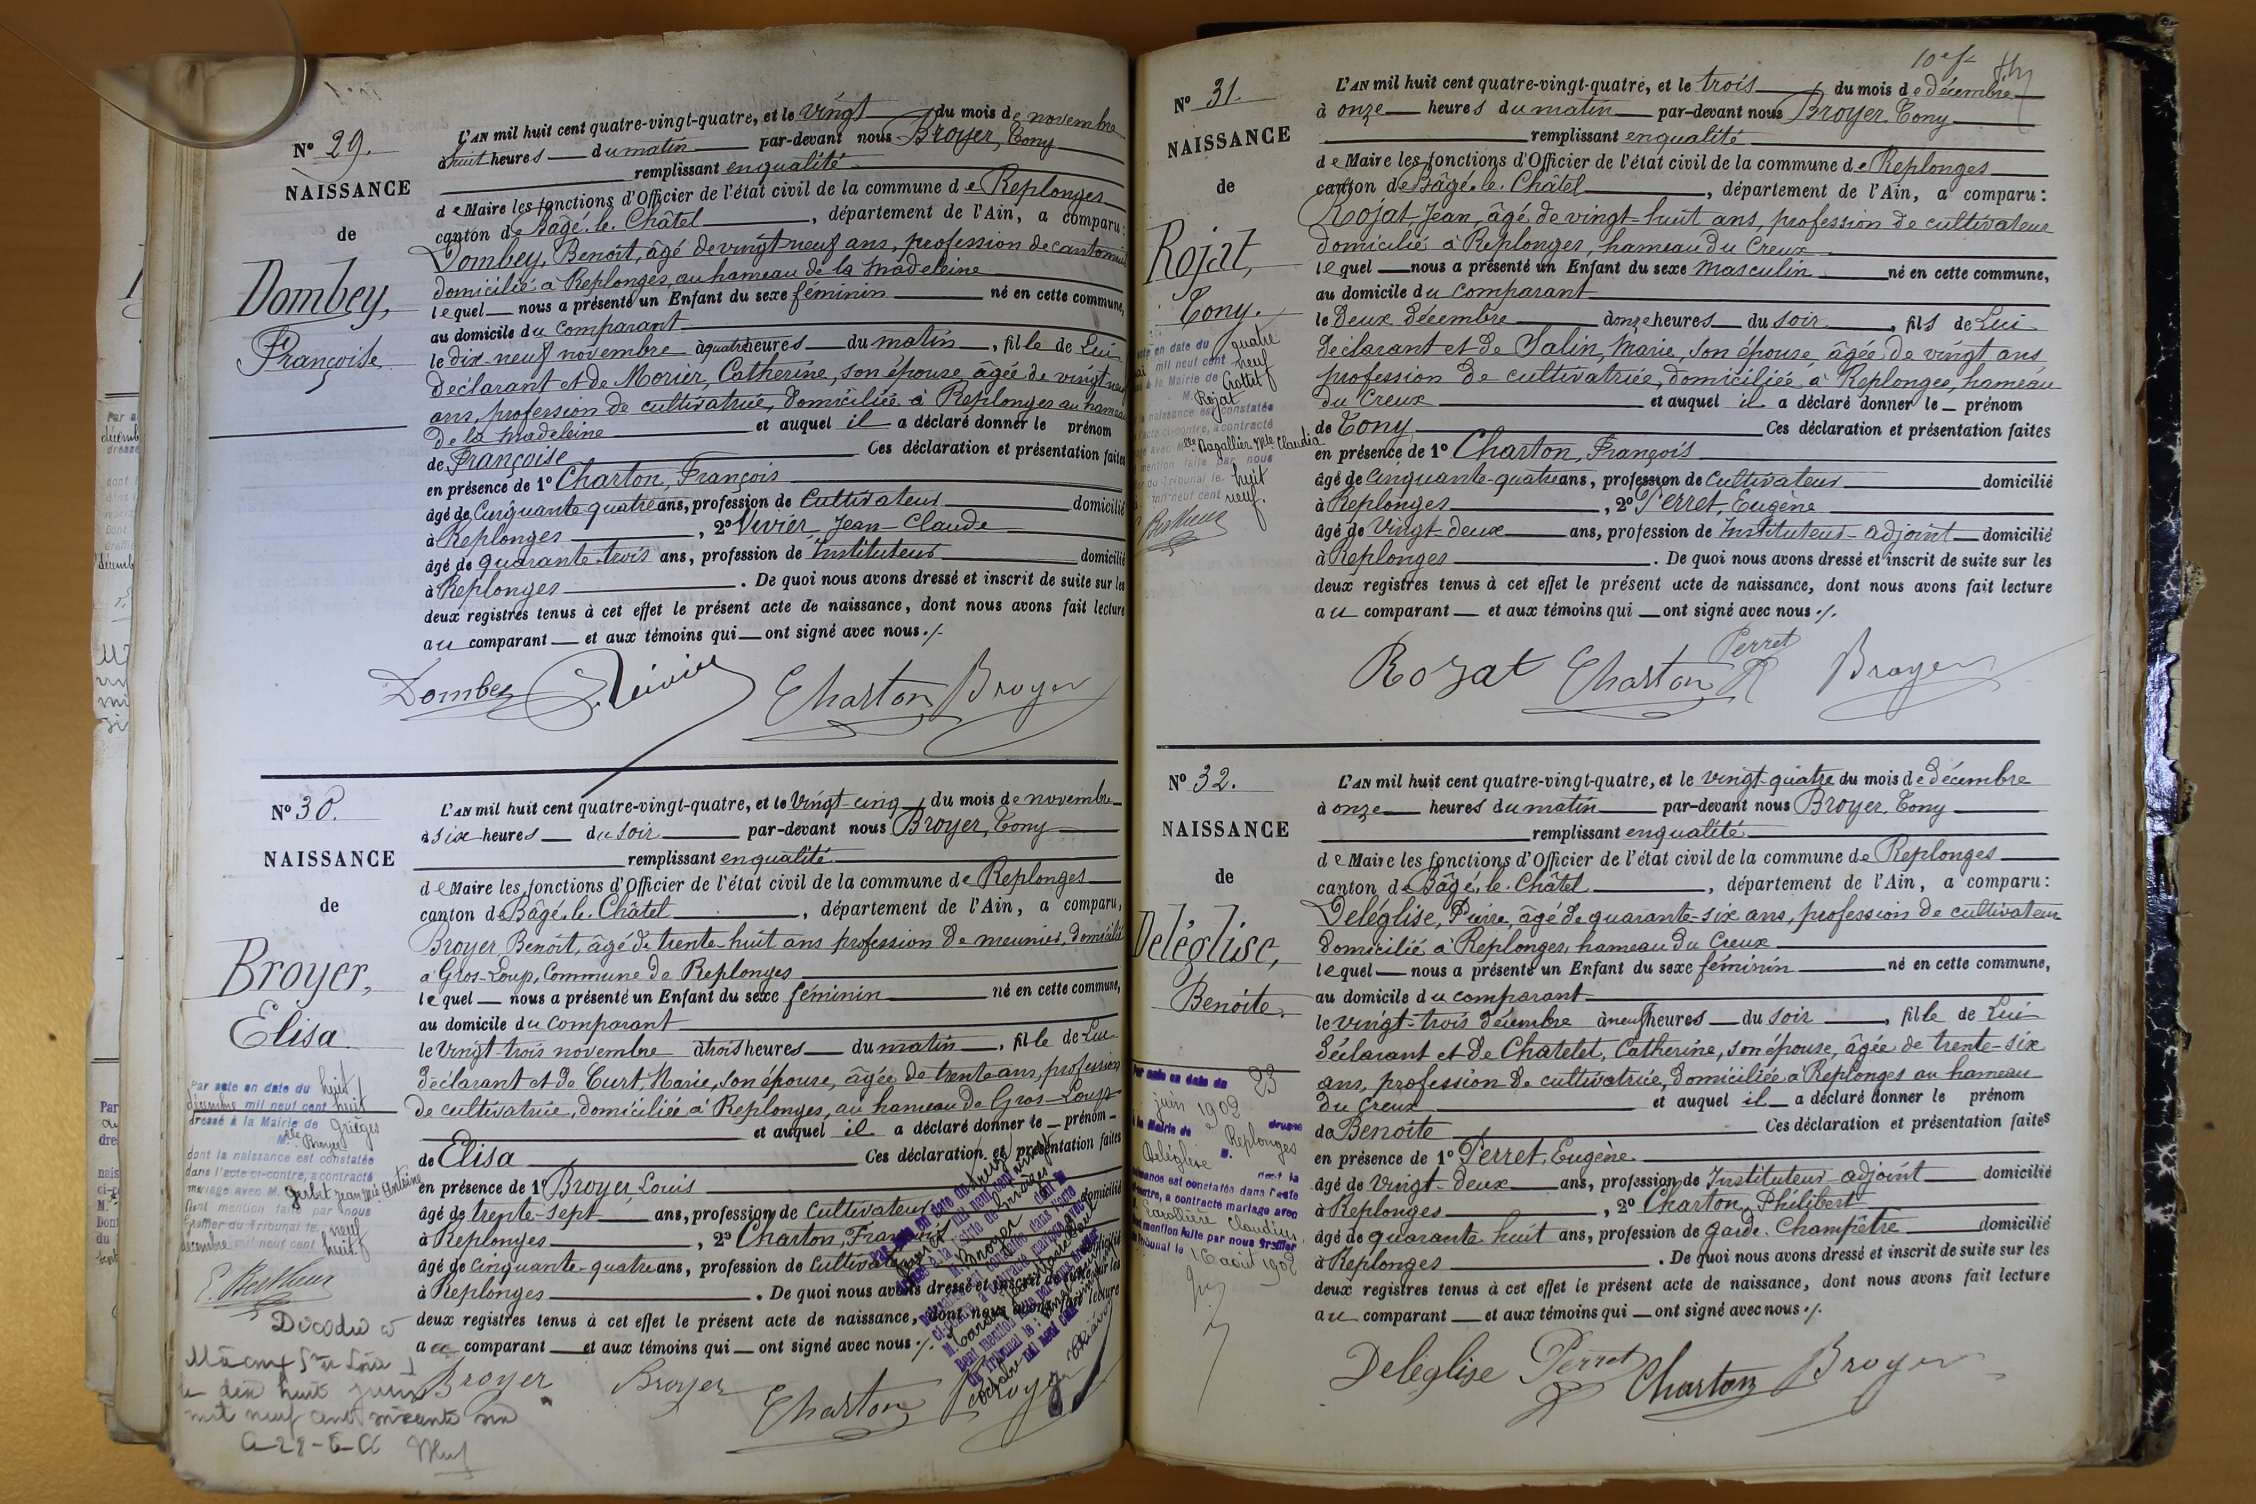 N° 29.
NAISSANCE
de
Dombey,
Françoise
L'AN mil huit cent quatre-vingt-quatre, et le vingt du mois de novembre
à huit heures du matin par-devant nous Broyer, Tony
remplissant en qualité
de Maire les fonctions d'Officier de l'état civil de la commune de Replonges
canton de Bâgé-le-Châtel, département de l'Ain, a comparu:
Dombey, Benoît, âgé de vingt neuf ans, profession de cantonnier
domicilié à Replonges, au hameau de la Madeleine
lequel nous a présenté un Enfant du sexe féminin né en cette commune,
au domicile du comparant
le dix-neuf novembre à quatre heures du matin, fille de Lui
déclarant et de Morier, Catherine, son épouse âgée de vingt neuf
ans, profession de cultivatrice, domiciliée à Replonges au hameau
de la Madeleine et auquel il a déclaré donner le prénom
de Françoise Ces déclaration et présentation faites
en présence de 1° Charton, François
âgé de cinquante-quatre ans, profession de cultivateur domicilié
à Replonges, 2° Vivier, Jean-Claude
âgé de quarante-trois ans, profession de Instituteur domicilié
à Replonges. De quoi nous avons dressé et inscrit de suite sur les
deux registres tenus à cet effet le présent acte de naissance, dont nous avons fait lecture
au comparant et aux témoins qui ont signé avec nous ./.
Dombey Vivier Charton Broyer
N° 30.
NAISSANCE
de
Broyer,
Elisa
L'AN mil huit cent quatre-vingt-quatre, et le vingt-cinq du mois de novembre
à six heures du soir par-devant nous Broyer, Tony
remplissant en qualité
de Maire les fonctions d'Officier de l'état civil de la commune de Replonges
canton de Bâgé-le-Châtel, département de l'Ain, a comparu,
Broyer, Benoît, âgé de trente-huit ans profession de meunier, domicilié
à Gros-Loup, Commune de Replonges
lequel nous a présenté un Enfant du sexe féminin né en cette commune,
au domicile du comparant
le vingt-trois novembre à trois heures du matin, fille de Lui
déclarant et de Curt, Marie, son épouse, âgée de trente ans, profession
de cultivatrice, domiciliée à Replonges, au hameau de Gros-Loup
et auquel il a déclaré donner le prénom
de Elisa Ces déclaration et présentation faites
en présence de 1° Broyer, Louis
âgé de trente-sept ans, profession de cultivateur domicilié
à Replonges, 2° Charton, François
âgé de cinquante-quatre ans, profession de cultivateur domicilié
à Replonges. De quoi nous avons dressé et inscrit de suite sur les
deux registres tenus à cet effet le présent acte de naissance, dont nous avons fait lecture
au comparant et aux témoins qui ont signé avec nous ./.
Broyer Broyer Charton Broyer
Par acte en date du huit
décembre mil neuf cent huit
dressé à la Mairie de Grièges
Mlle Broyer
dont la naissance est constatée
dans l'acte ci-contre, a contracté
mariage avec M. Gerbet Jean Mie Antoine
Dont mention faite par nous
Greffier du Tribunal le neuf
décembre mil neuf cent huit
Décédée à
Mâcon
le dix huit juin
mil neuf cent soixante
N° 31.
NAISSANCE
de
Rojat,
Tony.
L'AN mil huit cent quatre-vingt-quatre, et le trois du mois de décembre
à onze heures du matin par-devant nous Broyer, Tony
remplissant en qualité
de Maire les fonctions d'Officier de l'état civil de la commune de Replonges
canton de Bâgé-le-Châtel, département de l'Ain, a comparu:
Rojat Jean, âgé de vingt-huit ans, profession de cultivateur
domicilié à Replonges, hameau du Creux
lequel nous a présenté un Enfant du sexe masculin né en cette commune,
au domicile du comparant
le Deux décembre à onze heures du soir, fils de Lui
déclarant et de Salin, Marie, son épouse, âgée de vingt ans
profession de cultivatrice, domiciliée à Replonges, hameau
du Creux et auquel il a déclaré donner le prénom
de Tony Ces déclaration et présentation faites
en présence de 1° Charton, François
âgé de cinquante-quatre ans, profession de cultivateur domicilié
à Replonges, 2° Perret, Eugène
âgé de vingt-deux ans, profession de Instituteur-adjoint domicilié
à Replonges. De quoi nous avons dressé et inscrit de suite sur les
deux registres tenus à cet effet le présent acte de naissance, dont nous avons fait lecture
au comparant et aux témoins qui ont signé avec nous ./.
Rozat Charton Perret Broyer
acte en date du quatre
mil neuf cent neuf
à la Mairie de Crottet
M. Rojat
la naissance est constatée
l'acte ci-contre, a contracté
avec Mlle Bagallier Mie Claudia
mention faite par nous
du Tribunal le huit
mil neuf cent neuf.
N° 32.
NAISSANCE
de
Deléglise,
Benoite.
L'AN mil huit cent quatre-vingt-quatre, et le vingt-quatre du mois de décembre
à onze heures du matin par-devant nous Broyer, Tony
remplissant en qualité
de Maire les fonctions d'Officier de l'état civil de la commune de Replonges
canton de Bâgé-le-Châtel, département de l'Ain, a comparu:
Deléglise, Pierre, âgé de quarante-six ans, profession de cultivateur
domicilié à Replonges, hameau du Creux
lequel nous a présenté un Enfant du sexe féminin né en cette commune,
au domicile du comparant
le vingt-trois décembre à neuf heures du soir, fille de Lui
déclarant et de Chatelet, Catherine, son épouse, âgée de trente-six
ans, profession de cultivatrice, domiciliée à Replonges au hameau
du Creux et auquel il a déclaré donner le prénom
de Benoite Ces déclaration et présentation faites
en présence de 1° Perret, Eugène
âgé de vingt-deux ans, profession de Instituteur-adjoint domicilié
à Replonges, 2° Charton, Philibert
âgé de quarante huit ans, profession de garde-Champêtre domicilié
à Replonges. De quoi nous avons dressé et inscrit de suite sur les
deux registres tenus à cet effet le présent acte de naissance, dont nous avons fait lecture
au comparant et aux témoins qui ont signé avec nous ./.
Deleglise Perret Charton Broyer
Par acte en date du 23
juin 1902 dressé
à la Mairie de Replonges
Deléglise dont la
naissance est constatée dans l'acte
contre, a contracté mariage avec
Claudius
mention faite par nous Greffier
Tribunal le 16 août 1902